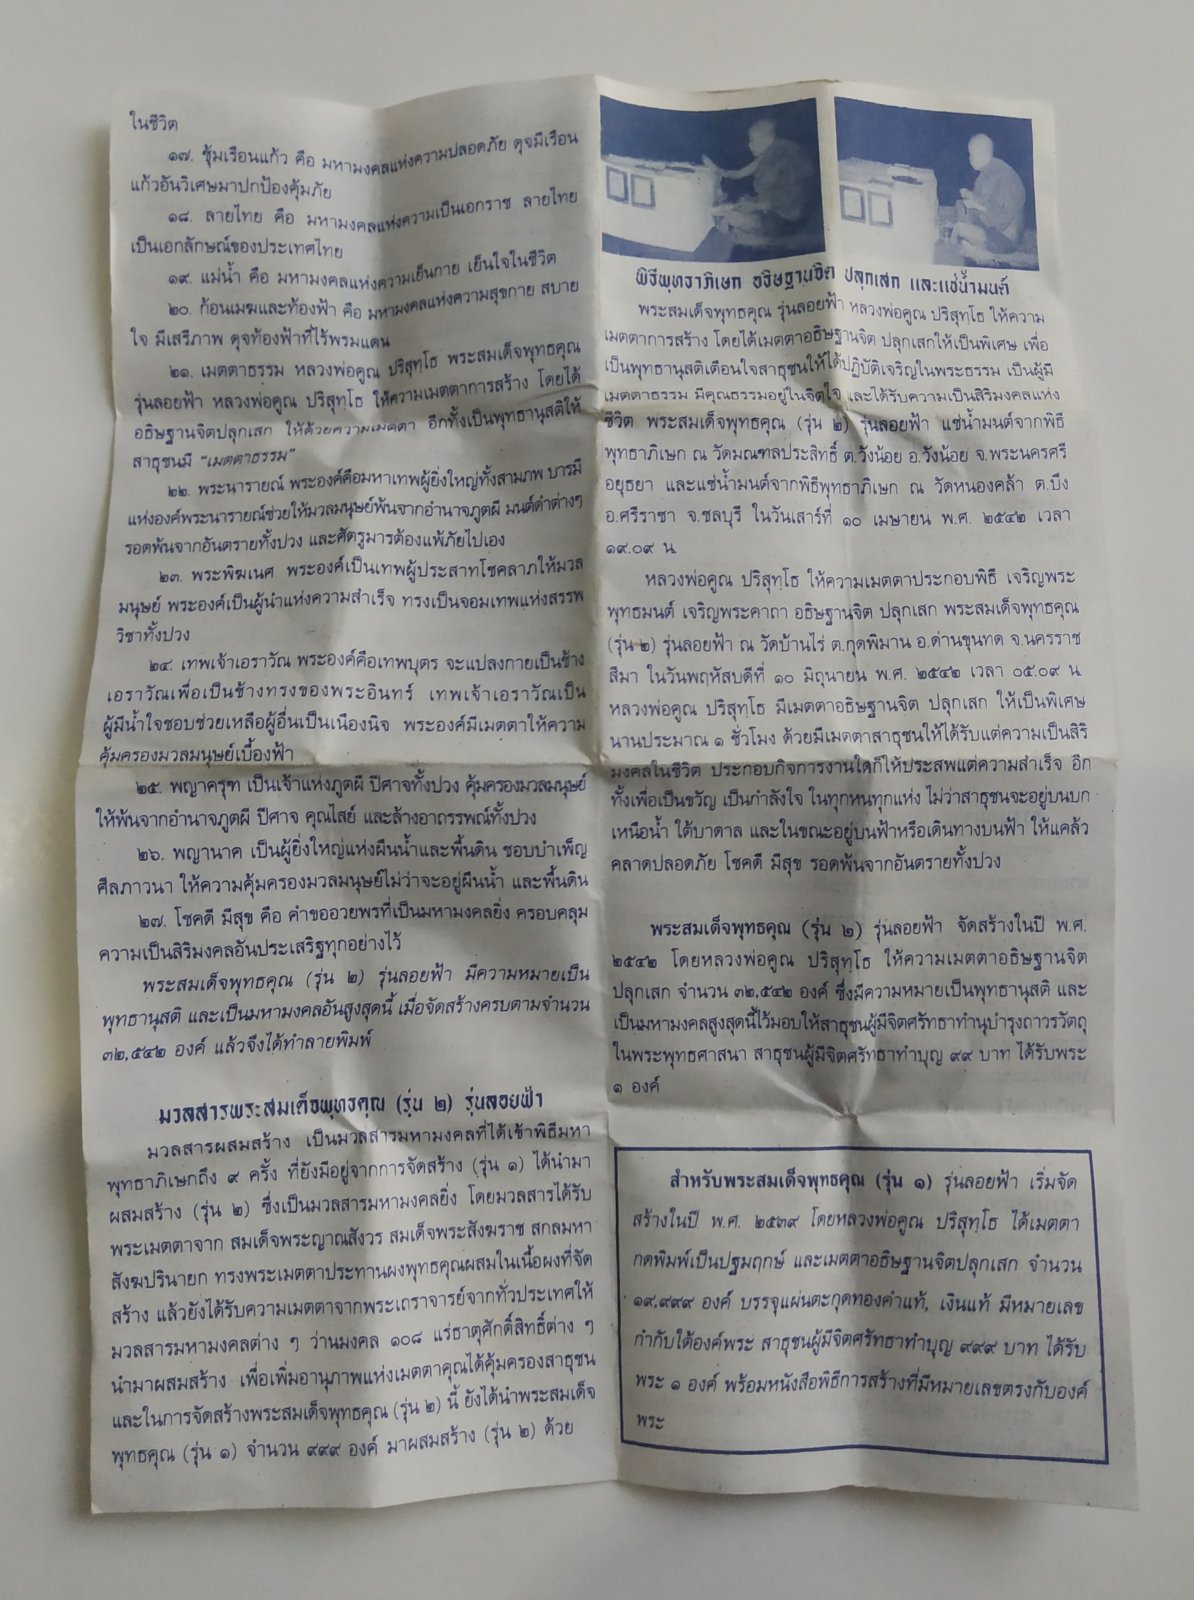 ในชีวิต
๑๗. ซุ้มเรือนแก้ว คือ มหามงคลแห่งความปลอดภัย ดุจมีเรือน
แก้วอันวิเศษมาปกป้องคุ้มภัย
๑๘. ลายไทย คือ มหามงคลแห่งความเป็นเอกราช ลายไทย
เป็นเอกลักษณ์ของประเทศไทย
๑๙. แม่น้ำ คือ มหามงคลแห่งความเย็นกาย เย็นใจในชีวิต
๒๐. ก้อนเมฆและท้องฟ้า คือ มหามงคลแห่งความสุขกาย สบาย
ใจ มีเสรีภาพ ดุจท้องฟ้าที่ไร้พรมแดน
๒๑. เมตตาธรรม หลวงพ่อคูณ ปริสุทฺโธ พระสมเด็จพุทธคุณ
รุ่นลอยฟ้า หลวงพ่อคูณ ปริสุทฺโธ ให้ความเมตตาการสร้าง โดยได้
อธิษฐานจิตปลุกเสก ให้ด้วยความเมตตา อีกทั้งเป็นพุทธานุสติให้
สาธุชนมี “เมตตาธรรม”
๒๒. พระนารายณ์ พระองค์คือมหาเทพผู้ยิ่งใหญ่ทั้งสามภพ บารมี
แห่งองค์พระนารายณ์ช่วยให้มวลมนุษย์พ้นจากอำนาจภูตผี มนต์ดำต่างๆ
รอดพ้นจากอันตรายทั้งปวง และศัตรูมารต้องแพ้ภัยไปเอง
๒๓. พระพิฆเนศ พระองค์เป็นเทพผู้ประสาทโชคลาภให้มวล
มนุษย์ พระองค์เป็นผู้นำแห่งความสำเร็จ ทรงเป็นจอมเทพแห่งสรรพ
วิชาทั้งปวง
๒๔. เทพเจ้าเอราวัณ พระองค์คือเทพบุตร จะแปลงกายเป็นช้าง
เอราวัณเพื่อเป็นช้างทรงของพระอินทร์ เทพเจ้าเอราวัณเป็น
ผู้มีน้ำใจชอบช่วยเหลือผู้อื่นเป็นเนืองนิจ พระองค์มีเมตตาให้ความ
คุ้มครองมวลมนุษย์เบื้องฟ้า
๒๕. พญาครุฑ เป็นเจ้าแห่งภูตผี ปีศาจทั้งปวง คุ้มครองมวลมนุษย์
ให้พ้นจากอำนาจภูตผี ปีศาจ คุณไสย์ และล้างอาถรรพณ์ทั้งปวง
๒๖. พญานาค เป็นผู้ยิ่งใหญ่แห่งผืนน้ำและพื้นดิน ชอบบำเพ็ญ
ศีลภาวนา ให้ความคุ้มครองมวลมนุษย์ไม่ว่าจะอยู่ผืนน้ำ และพื้นดิน
๒๗. โชคดี มีสุข คือ คำขออวยพรที่เป็นมหามงคลยิ่ง ครอบคลุม
ความเป็นสิริมงคลอันประเสริฐทุกอย่างไว้
พระสมเด็จพุทธคุณ (รุ่น ๒) รุ่นลอยฟ้า มีความหมายเป็น
พุทธานุสติ และเป็นมหามงคลอันสูงสุดนี้ เมื่อจัดสร้างครบตามจำนวน
๓๒,๕๔๒ องค์ แล้วจึงได้ทำลายพิมพ์
มวลสารพระสมเด็จพุทธคุณ (รุ่น ๒) รุ่นลอยฟ้า
มวลสารผสมสร้าง เป็นมวลสารมหามงคลที่ได้เข้าพิธีมหา
พุทธาภิเษกถึง ๙ ครั้ง ที่ยังมีอยู่จากการจัดสร้าง (รุ่น ๑) ได้นำมา
ผสมสร้าง (รุ่น ๒) ซึ่งเป็นมวลสารมหามงคลยิ่ง โดยมวลสารได้รับ
พระเมตตาจาก สมเด็จพระญาณสังวร สมเด็จพระสังฆราช สกลมหา
สังฆปรินายก ทรงพระเมตตาประทานผงพุทธคุณผสมในเนื้อผงที่จัด
สร้าง แล้วยังได้รับความเมตตาจากพระเถราจารย์จากทั่วประเทศให้
มวลสารมหามงคลต่าง ๆ ว่านมงคล ๑๐๘ แร่ธาตุศักดิ์สิทธิ์ต่าง ๆ
นำมาผสมสร้าง เพื่อเพิ่มอานุภาพแห่งเมตตาคุณได้คุ้มครองสาธุชน
และในการจัดสร้างพระสมเด็จพุทธคุณ (รุ่น ๒) นี้ ยังได้นำพระสมเด็จ
พุทธคุณ (รุ่น ๑) จำนวน ๙๙๙ องค์ มาผสมสร้าง (รุ่น ๒) ด้วย
พิธีพุทธาภิเษก อธิษฐานจิต ปลุกเสก และแช่น้ำมนต์
พระสมเด็จพุทธคุณ รุ่นลอยฟ้า หลวงพ่อคูณ ปริสุทฺโธ ให้ความ
เมตตาการสร้าง โดยได้เมตตาอธิษฐานจิต ปลุกเสกให้เป็นพิเศษ เพื่อ
เป็นพุทธานุสติเตือนใจสาธุชนให้ได้ปฏิบัติเจริญในพระธรรม เป็นผู้มี
เมตตาธรรม มีคุณธรรมอยู่ในจิตใจ และได้รับความเป็นสิริมงคลแห่ง
ชีวิต พระสมเด็จพุทธคุณ (รุ่น ๒) รุ่นลอยฟ้า แช่น้ำมนต์จากพิธี
พุทธาภิเษก ณ วัดมณฑลประสิทธิ์ ต.วังน้อย อ.วังน้อย จ.พระนครศรี
อยุธยา และแช่น้ำมนต์จากพิธีพุทธาภิเษก ณ วัดหนองคล้า ต.บึง
อ.ศรีราชา จ.ชลบุรี ในวันเสาร์ที่ ๑๐ เมษายน พ.ศ. ๒๕๔๒ เวลา
๑๙.๐๙ น.
หลวงพ่อคูณ ปริสุทฺโธ ให้ความเมตตาประกอบพิธี เจริญพระ
พุทธมนต์ เจริญพระคาถา อธิษฐานจิต ปลุกเสก พระสมเด็จพุทธคุณ
(รุ่น ๒) รุ่นลอยฟ้า ณ วัดบ้านไร่ ต.กุดพิมาน อ.ด่านขุนทด จ.นครราช
สีมา ในวันพฤหัสบดีที่ ๑๐ มิถุนายน พ.ศ. ๒๕๔๒ เวลา ๐๕.๐๙ น.
หลวงพ่อคูณ ปริสุทฺโธ มีเมตตาอธิษฐานจิต ปลุกเสก ให้เป็นพิเศษ
นานประมาณ ๑ ชั่วโมง ด้วยมีเมตตาสาธุชนให้ได้รับแต่ความเป็นสิริ
มงคลในชีวิต ประกอบกิจการงานใดก็ให้ประสพแต่ความสำเร็จ อีก
ทั้งเพื่อเป็นขวัญ เป็นกำลังใจ ในทุกหนทุกแห่ง ไม่ว่าสาธุชนจะอยู่บนบก
เหนือน้ำ ใต้บาดาล และในขณะอยู่บนฟ้าหรือเดินทางบนฟ้า ให้แคล้ว
คลาดปลอดภัย โชคดี มีสุข รอดพ้นจากอันตรายทั้งปวง
พระสมเด็จพุทธคุณ (รุ่น ๒) รุ่นลอยฟ้า จัดสร้างในปี พ.ศ.
๒๕๔๒ โดยหลวงพ่อคูณ ปริสุทฺโธ ให้ความเมตตาอธิษฐานจิต
ปลุกเสก จำนวน ๓๒,๕๔๒ องค์ ซึ่งมีความหมายเป็นพุทธานุสติ และ
เป็นมหามงคลสูงสุดนี้ไว้มอบให้สาธุชนผู้มีจิตศรัทธาทำนุบำรุงถาวรวัตถุ
ในพระพุทธศาสนา สาธุชนผู้มีจิตศรัทธาทำบุญ ๙๙ บาท ได้รับพระ
๑ องค์
สำหรับพระสมเด็จพุทธคุณ (รุ่น ๑) รุ่นลอยฟ้า เริ่มจัด
สร้างในปี พ.ศ. ๒๕๓๙ โดยหลวงพ่อคูณ ปริสุทฺโธ ได้เมตตา
กดพิมพ์เป็นปฐมฤกษ์ และเมตตาอธิษฐานจิตปลุกเสก จำนวน
๑๙,๙๙๙ องค์ บรรจุแผ่นตะกุดทองคำแท้, เงินแท้ มีหมายเลข
กำกับใต้องค์พระ สาธุชนผู้มีจิตศรัทธาทำบุญ ๙๙๙ บาท ได้รับ
พระ ๑ องค์ พร้อมหนังสือพิธีการสร้างที่มีหมายเลขตรงกับองค์
พระ